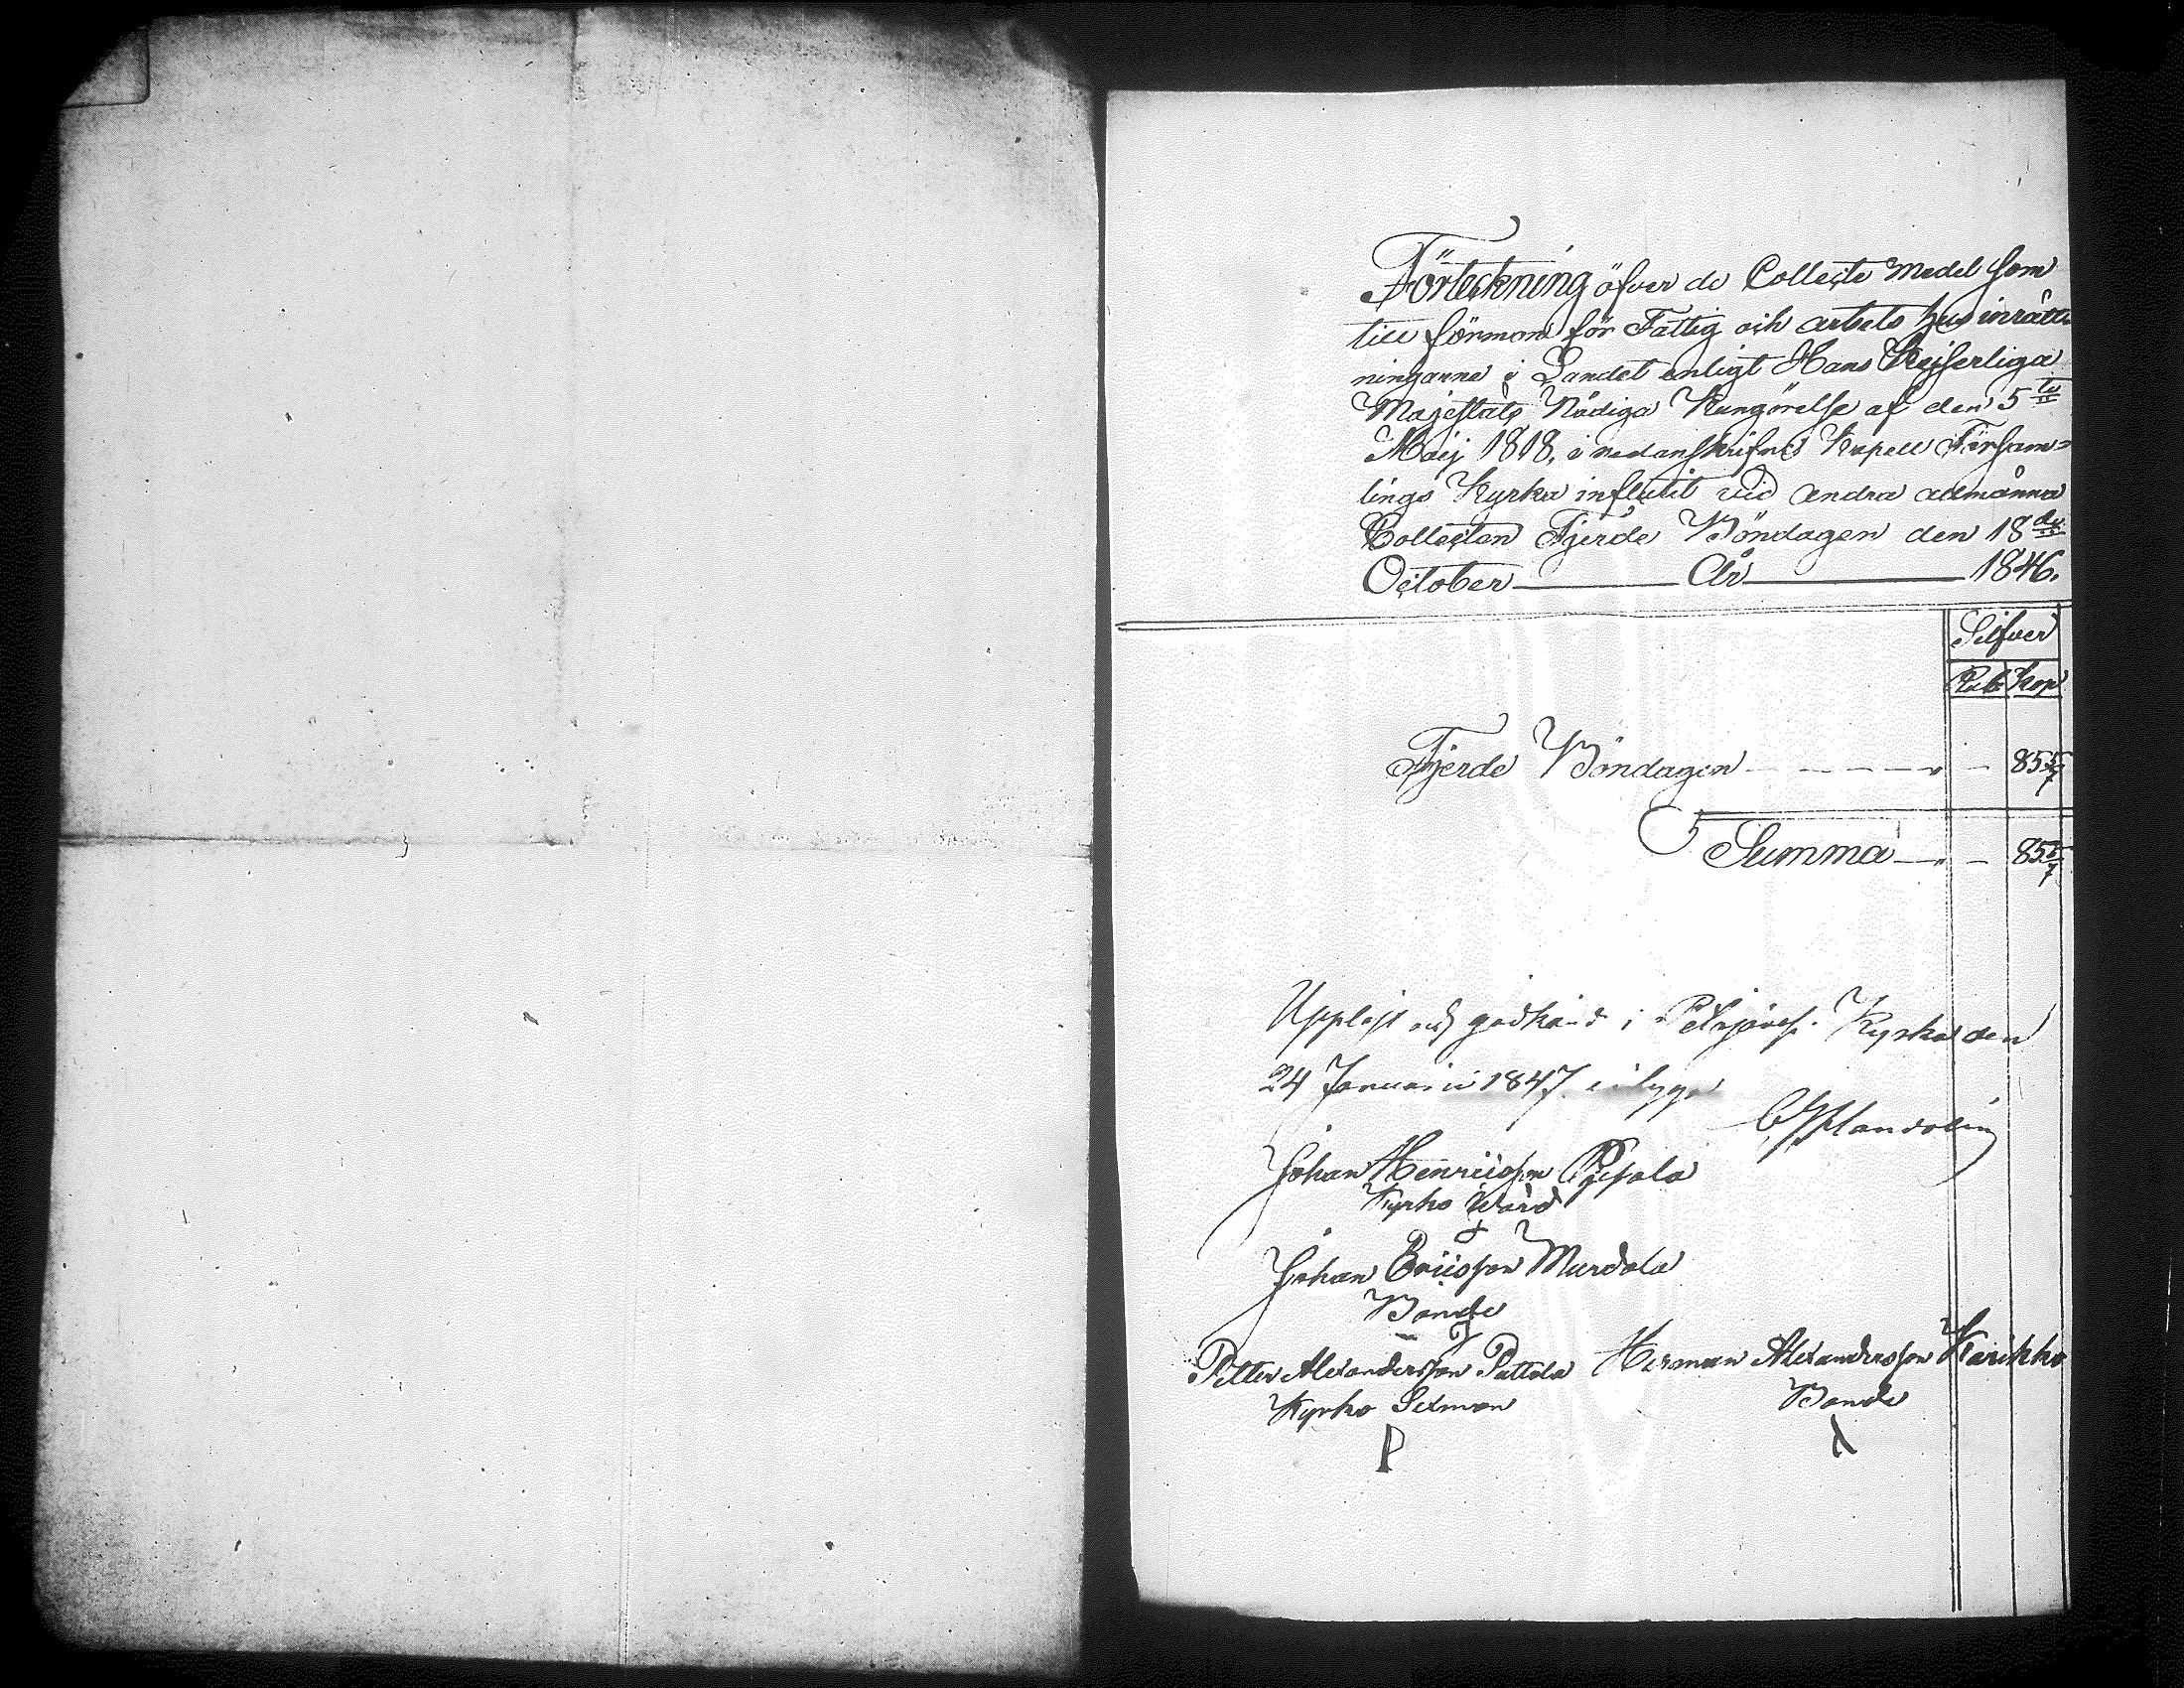 Förteckning öfver de Collecte medel som
till förmon för Fattig och arbets hus inrätt-
ningarne i Landet enligt Hans Keiserliga
Majestäts Nådiga Kungörelse af den 5te
Maij 1818, i nedanskrifne Kapell Försam=
lings Kyrka influtit vid andra allmänna
Collecten Fjerde Böndagen den 18de
October År 1846.
Silfver
Rub Kop
Fjerde Böndagen 85 5/7
Summa 85 5/7
Uppläst och godkänd i Kyrka den
24 Januarii 1847 intygar
Johan Henricsson
Kyrko Värd
Johan Ericsson Murdola
Bonde
Petter Alexandersson Pattola Herman Alexandersson Karikko
Kyrko Sexman Bonde
P